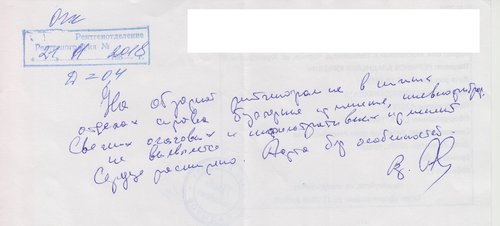 ОГК
Рентгенотделение
Рентгенография №
21 11 2018
Д = 0,4
На обзорной рентгенограмме в нижних
отделах справа изменения, пневмофиброз.
Свежих очаговых и инфильтративных изменений
не выявлено
Сердце расширено. Аорта без особенностей.